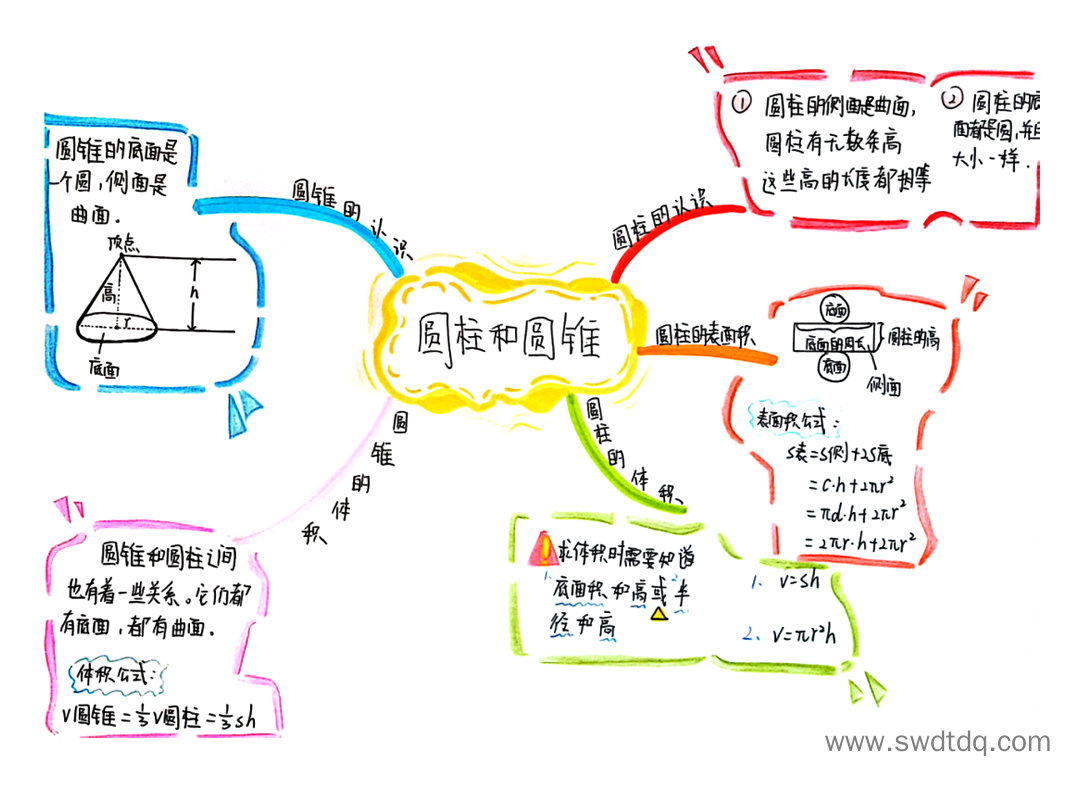 圆柱和圆锥
圆柱的认识
① 圆柱的侧面是曲面，
圆柱有无数条高
这些高的长度都相等
② 圆柱的底
面都是圆，并且
大小一样．
圆柱的表面积
底面
底面的周长
圆柱的高
底面
侧面
表面积公式：
S表=S侧+2S底
=C·h+2πr²
=πd·h+2πr²
=2πr·h+2πr²
圆柱的体积
求体积时需要知道
1.底面积和高或2.半
径和高
1. V=sh
2. V=πr²h
圆锥的体积
圆锥和圆柱之间
也有着一些关系。它们都
有底面，都有曲面．
体积公式：
V圆锥=⅓V圆柱=⅓sh
圆锥的认识
圆锥的底面是
一个圆，侧面是
曲面．
顶点
高
h
r
底面
www.swdtdq.com